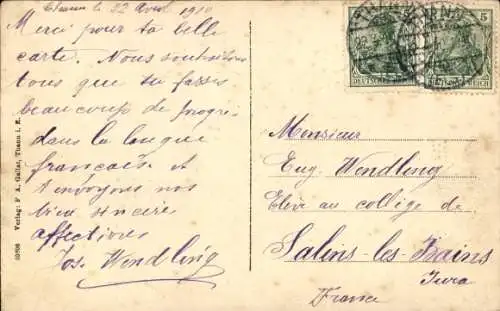 Thann le 22 Avril 1910
Merci pour ta belle
carte. Nous souhaitons
tous que tu fasses
beaucoup de progrès
dans la langue
française et
t'envoyons nos
bien sincères
affections
Jos. Wendling
Monsieur
Eug. Wendling
Elève au collège de
Salins-les-Bains
Jura
France
Verlag: F. A. Gallar, Thann i. E.
DEUTSCHES REICH
5
DEUTSCHES REICH
THANN